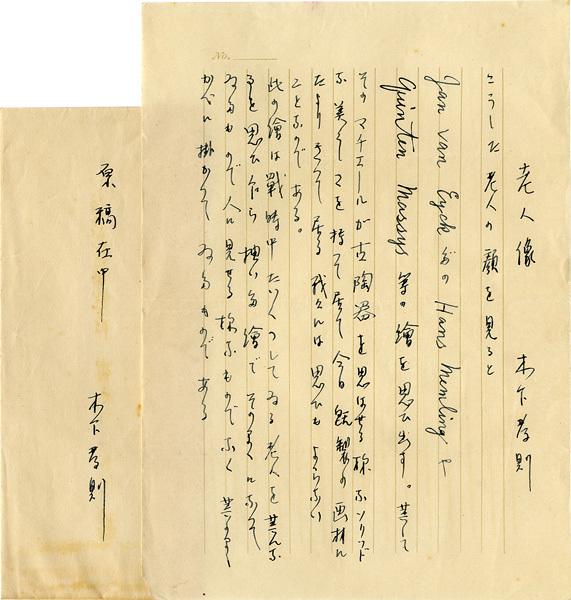 No.
老人像　木下孝則
こうした老人の顔を見ると
Jan van Eyck Hans Memling や
Quinten Massys 等の繪を思ひ出す。其して
そのマチエールが古陶器を思はせる様なソリッド
な美しさを持つて居て今日既製の画材に
たよりきつて居る我々には思ひもよらない
ことなのである。
此の繪は戰時中たいくつしてゐる老人を其んな
思ひ乍ら描いた繪でそのまゝになつて
ゐるもので人に見せる様なものでなく
かべに掛かつてゐるものである
原稿在中
木下孝則